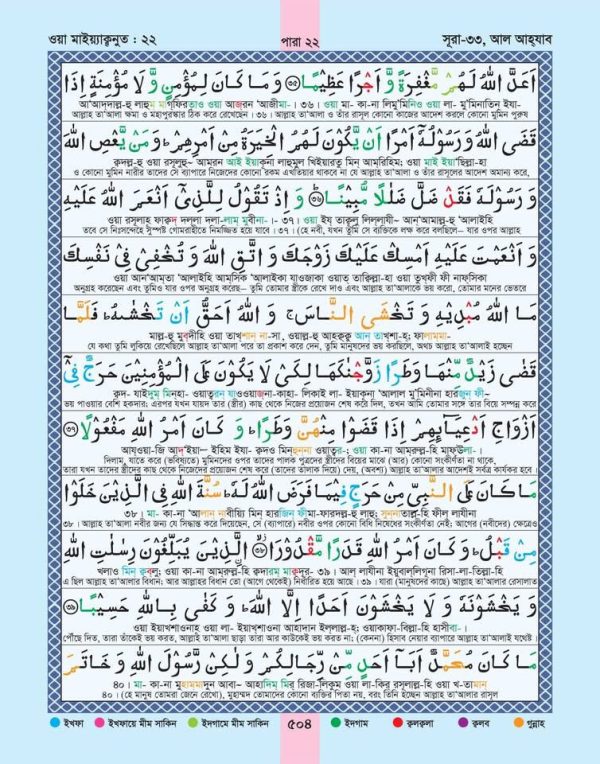 ওয়া মাইয়্যাক্বনুত : ২২ পারা ২২ সূরা-৩৩, আল আহ্‌যাব
اَعَدَّ اللّٰهُ لَهُمْ مَّغْفِرَةً وَّ اَجْرًا عَظِيْمًا ﴿۳۵﴾ وَ مَا كَانَ لِمُؤْمِنٍ وَّ لَا مُؤْمِنَةٍ اِذَا
আল্লাহ তা'আলা ক্ষমা ও মহাপুরস্কার ঠিক করে রেখেছেন। ৩৬। আল্লাহ তা'আলা ও তাঁর রাসূল কোনো কাজের আদেশ করলে কোনো মুমিন পুরুষ
قَضَى اللّٰهُ وَ رَسُوْلُهٗۤ اَمْرًا اَنْ يَّكُوْنَ لَهُمُ الْخِيَرَةُ مِنْ اَمْرِهِمْ ؕ وَ مَنْ يَّعْصِ اللّٰهَ
ও কোনো মুমিন নারীর তাদের সে ব্যাপারে নিজেদের কোনো রকম এখতিয়ার থাকবে না যে কেউ আল্লাহ তা'আলা ও তাঁর রাসূলের আদেশ অমান্য করে,
وَ رَسُوْلَهٗ فَقَدْ ضَلَّ ضَلٰلًا مُّبِيْنًا ﴿۳۶﴾ وَ اِذْ تَقُوْلُ لِلَّذِيْۤ اَنْعَمَ اللّٰهُ عَلَيْهِ
ওয়া রসূলাহূ ফাক্বদ্ দল্লা দলা-লাম্ মুবীনা-। ৩৭। ওয়া ইয্ তাক্বূলু লিল্লাযী~ আন্'আমাল্ল-হু 'আলাইহি
তবে সে নিঃসন্দেহে সুস্পষ্ট গোমরাহীতে নিমজ্জিত হয়ে যাবে। ৩৭। (হে নবী, যখন তুমি সে ব্যক্তিকে লক্ষ করে বলছিলে– যার ওপর আল্লাহ
وَ اَنْعَمْتَ عَلَيْهِ اَمْسِكْ عَلَيْكَ زَوْجَكَ وَ اتَّقِ اللّٰهَ وَ تُخْفِيْ فِيْ نَفْسِكَ
ওয়া আন্'আম্তা 'আলাইহি আমসিক্ 'আলাইকা যাওজাকা ওয়াত্ তাক্বিল্লা-হা ওয়া তুখফী ফী নাফ্সিকা
অনুগ্রহ করেছেন এবং তুমিও যার ওপর অনুগ্রহ করেছ– তুমি তোমার স্ত্রীকে রেখে দাও এবং আল্লাহ তা'আলাকে ভয় করো, তোমার মনের ভেতরে
مَا اللّٰهُ مُبْدِيْهِ وَ تَخْشَى النَّاسَ ۚ وَ اللّٰهُ اَحَقُّ اَنْ تَخْشٰىهُ ؕ فَلَمَّا
মাল্ল-হু মুব্দীহি ওয়া তাখ্শান্ না-সা, ওয়াল্ল-হু আহাক্ক্বু আন্ তাখ্শা-হ্; ফালাম্মা-
যে কথা তুমি লুকিয়ে রেখেছিলে আল্লাহ তা'আলা পরে তা প্রকাশ করে দেন, তুমি মানুষদের ভয় করছিলে, অথচ আল্লাহ তা'আলাই হচ্ছেন
قَضٰى زَيْدٌ مِّنْهَا وَطَرًا زَوَّجْنٰكَهَا لِكَيْ لَا يَكُوْنَ عَلَى الْمُؤْمِنِيْنَ حَرَجٌ فِيْۤ
ভয় পাওয়ার বেশি হকদার; এরপর যখন যায়দ তার (স্ত্রীর) কাছ থেকে নিজের প্রয়োজন শেষ করে দিল, তখন আমি তোমার সঙ্গে তার বিয়ে সম্পন্ন করে
اَزْوَاجِ اَدْعِيَآىِٕهِمْ اِذَا قَضَوْا مِنْهُنَّ وَطَرًا ؕ وَ كَانَ اَمْرُ اللّٰهِ مَفْعُوْلًا ﴿۳۷﴾
দিলাম, যাতে করে (ভবিষ্যতে) মুমিনদের ওপর তাদের পালক পুত্রদের স্ত্রীদের বিয়ের মাঝে (আর) কোনো সংকীর্ণতা না থাকে,
তারা যখন তাদের স্ত্রীদের কাছ থেকে নিজেদের প্রয়োজন শেষ করে (তাদের তালাক দিয়ে) দেয়, (অবশ্য) আল্লাহ তা'আলার আদেশই সর্বত্র কার্যকর হবে।
مَا كَانَ عَلَى النَّبِيِّ مِنْ حَرَجٍ فِيْمَا فَرَضَ اللّٰهُ لَهٗ ؕ سُنَّةَ اللّٰهِ فِي الَّذِيْنَ خَلَوْا
৩৮। মা- কা-না 'আলান্ নাবীয়্যি মিন্ হারজিন্ ফীমা-ফারদল্ল-হু লাহু; সুন্নাতাল্ল-হি ফীল্ লাযীনা
৩৮। আল্লাহ তা'আলা নবীর জন্য যে সিদ্ধান্ত করে দিয়েছেন, সে (ব্যাপারে) নবীর ওপর কোনো বিধি নিষেধের সংকীর্ণতা নেই; আগের (নবীদের) ক্ষেত্রেও
مِنْ قَبْلُ ؕ وَ كَانَ اَمْرُ اللّٰهِ قَدَرًا مَّقْدُوْرًا ﴿۳۸﴾ الَّذِيْنَ يُبَلِّغُوْنَ رِسٰلٰتِ اللّٰهِ
এ ছিল আল্লাহ তা'আলার বিধান; আর আল্লাহর বিধান তো (আগে থেকেই) নির্ধারিত হয়ে আছে। ৩৯। যারা (মানুষদের কাছে) আল্লাহ তা'আলার রেসালাত
وَ يَخْشَوْنَهٗ وَ لَا يَخْشَوْنَ اَحَدًا اِلَّا اللّٰهَ ؕ وَ كَفٰى بِاللّٰهِ حَسِيْبًا ﴿۳۹﴾
ওয়া ইয়াখশাওনাহূ ওয়া লা- ইয়াখ্শাওনা আহাদান্ ইল্লাল্ল-হ্; ওয়াকাফা-বিল্লা-হি হাসীবা-।
পৌঁছে দিত, তারা তাঁকেই ভয় করত, আল্লাহ তা'আলা ছাড়া তারা আর কাউকেই ভয় করত না; (কেননা) হিসাব নেয়ার ব্যাপারে আল্লাহ তা'আলাই যথেষ্ট।
مَا كَانَ مُحَمَّدٌ اَبَاۤ اَحَدٍ مِّنْ رِّجَالِكُمْ وَ لٰكِنْ رَّسُوْلَ اللّٰهِ وَ خَاتَمَ
৪০। মা- কা-না মুহাম্মাদুন আবা~ আহাদিম্ মির্ রিজা-লিকুম্ ওয়া লা-কির্ রসূলাল্ল-হি ওয়া খ-তামান্
৪০। (হে মানুষ তোমরা জেনে রেখো), মুহাম্মদ তোমাদের কোনো ব্যক্তির পিতা নয়, বরং তিনি হচ্ছেন আল্লাহ তা'আলার রাসূল
ইখফা ইখফায়ে মীম সাকিন ইদগামে মীম সাকিন ৫০৪ ইদগাম ক্বলক্বলা ক্বলব গুন্নাহ